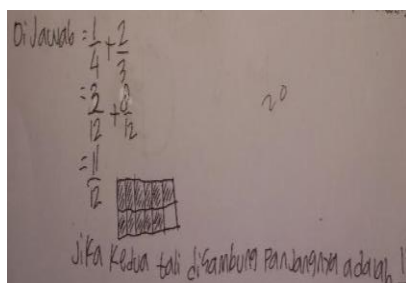 Dijawab = 1/4 + 2/3
= 3/12 + 8/12
= 11/12
20
Jika kedua tali disambung Panjangnya adalah